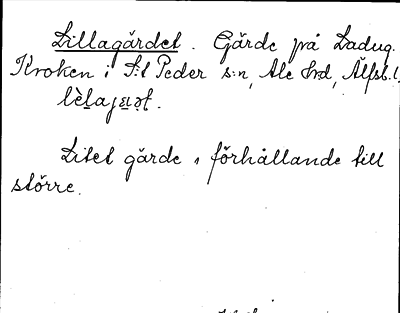 Lillagärdet. Gärde på Ladug.
Kroken i S:t Peder s:n, Ale hrd, Älfsb. l,
Litet gärde i förhållande till
större.